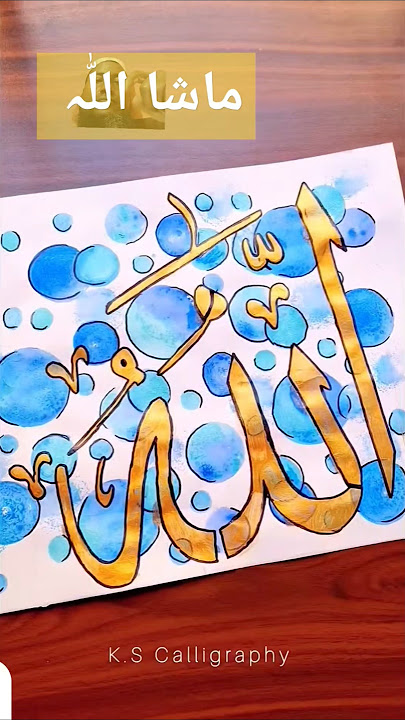 ماشا اللّٰه
الله
K.S Calligraphy